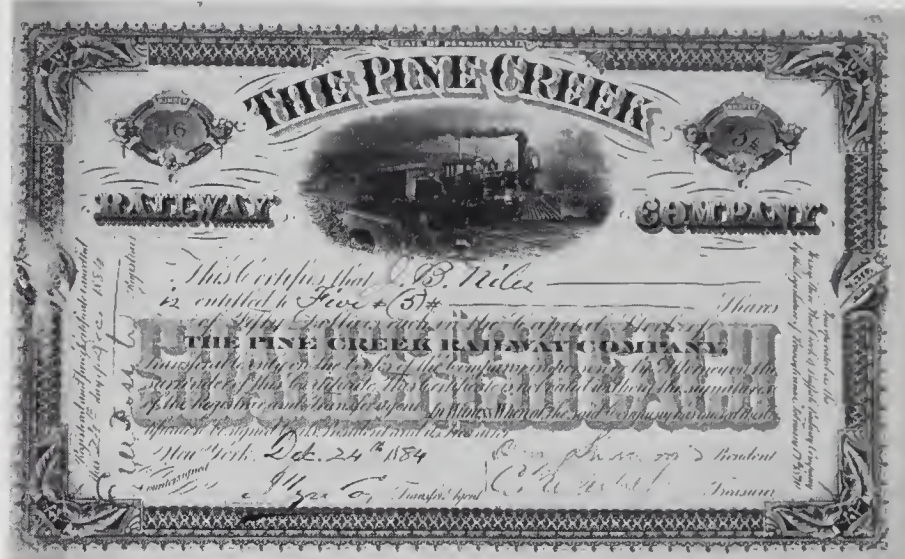 STATE OF PENNSYLVANIA
THE PINE CREEK
NUMBER
16
SHARES
5
RAILWAY
COMPANY
This Certifies that J. B. Niles
is entitled to Five (5) Shares
of Fifty Dollars each in the Capital Stock of
THE PINE CREEK RAILWAY COMPANY,
transferable only on the books of the Company in person or by Attorney on the
surrender of this Certificate. This Certificate is not valid without the signatures
of the Registrar and transfer agent. In Witness Whereof the said Company has caused this
to be signed by its President and its Treasurer
New York. Dec. 24th 1884
President
Countersigned
Transfer Agent
Treasurer
this 24th day of Dec 1884
Registrars
Incorporated as The
Jersey Shore Pine Creek &
Railway Company